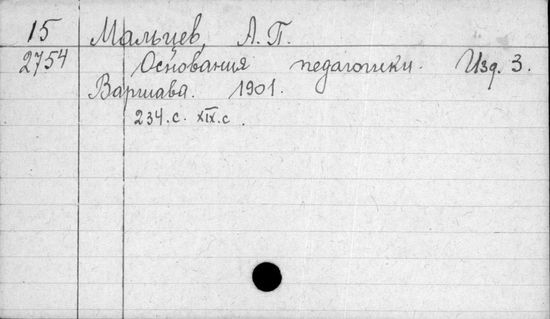 15 Мальцев, А.П.
2754 Основания педагогики. Изд. 3.
Варшава. 1901.
234.с. XIX.с.